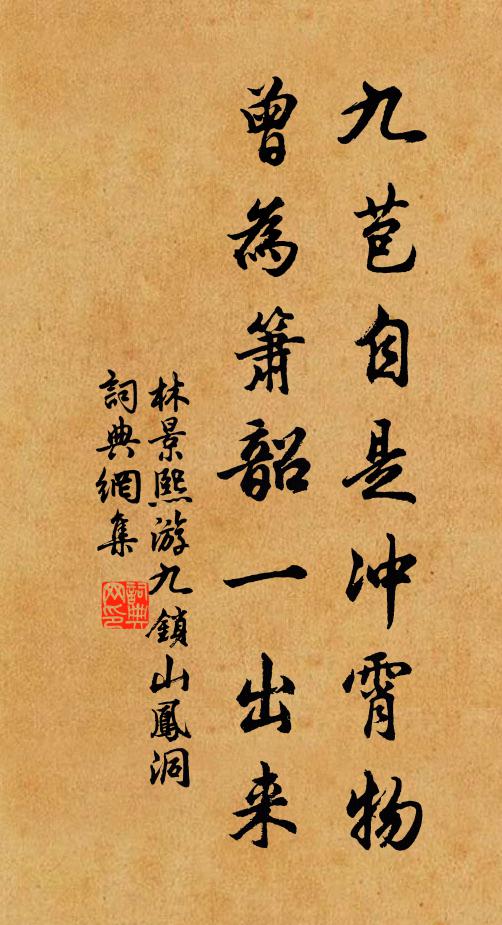 九苞自是冲霄物
曾為箫韶一出来
林景熙游九鎖山鳳洞
詞典網集
詞典网印